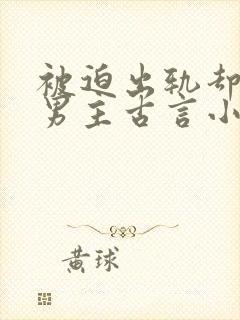 被迫出轨却
男主古言小
黄球